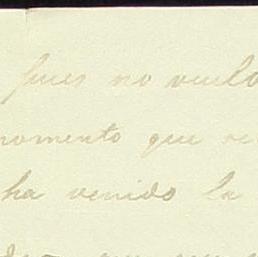 pues no vuelo
momento que se
ha venido la